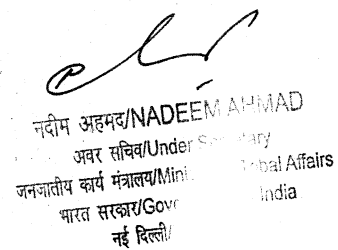 नदीम अहमद/NADEEM AHMAD
अवर सचिव/Under
जनजातीय कार्य मंत्रालय/Mini Affairs
भारत सरकार/Gove India
नई दिल्ली/